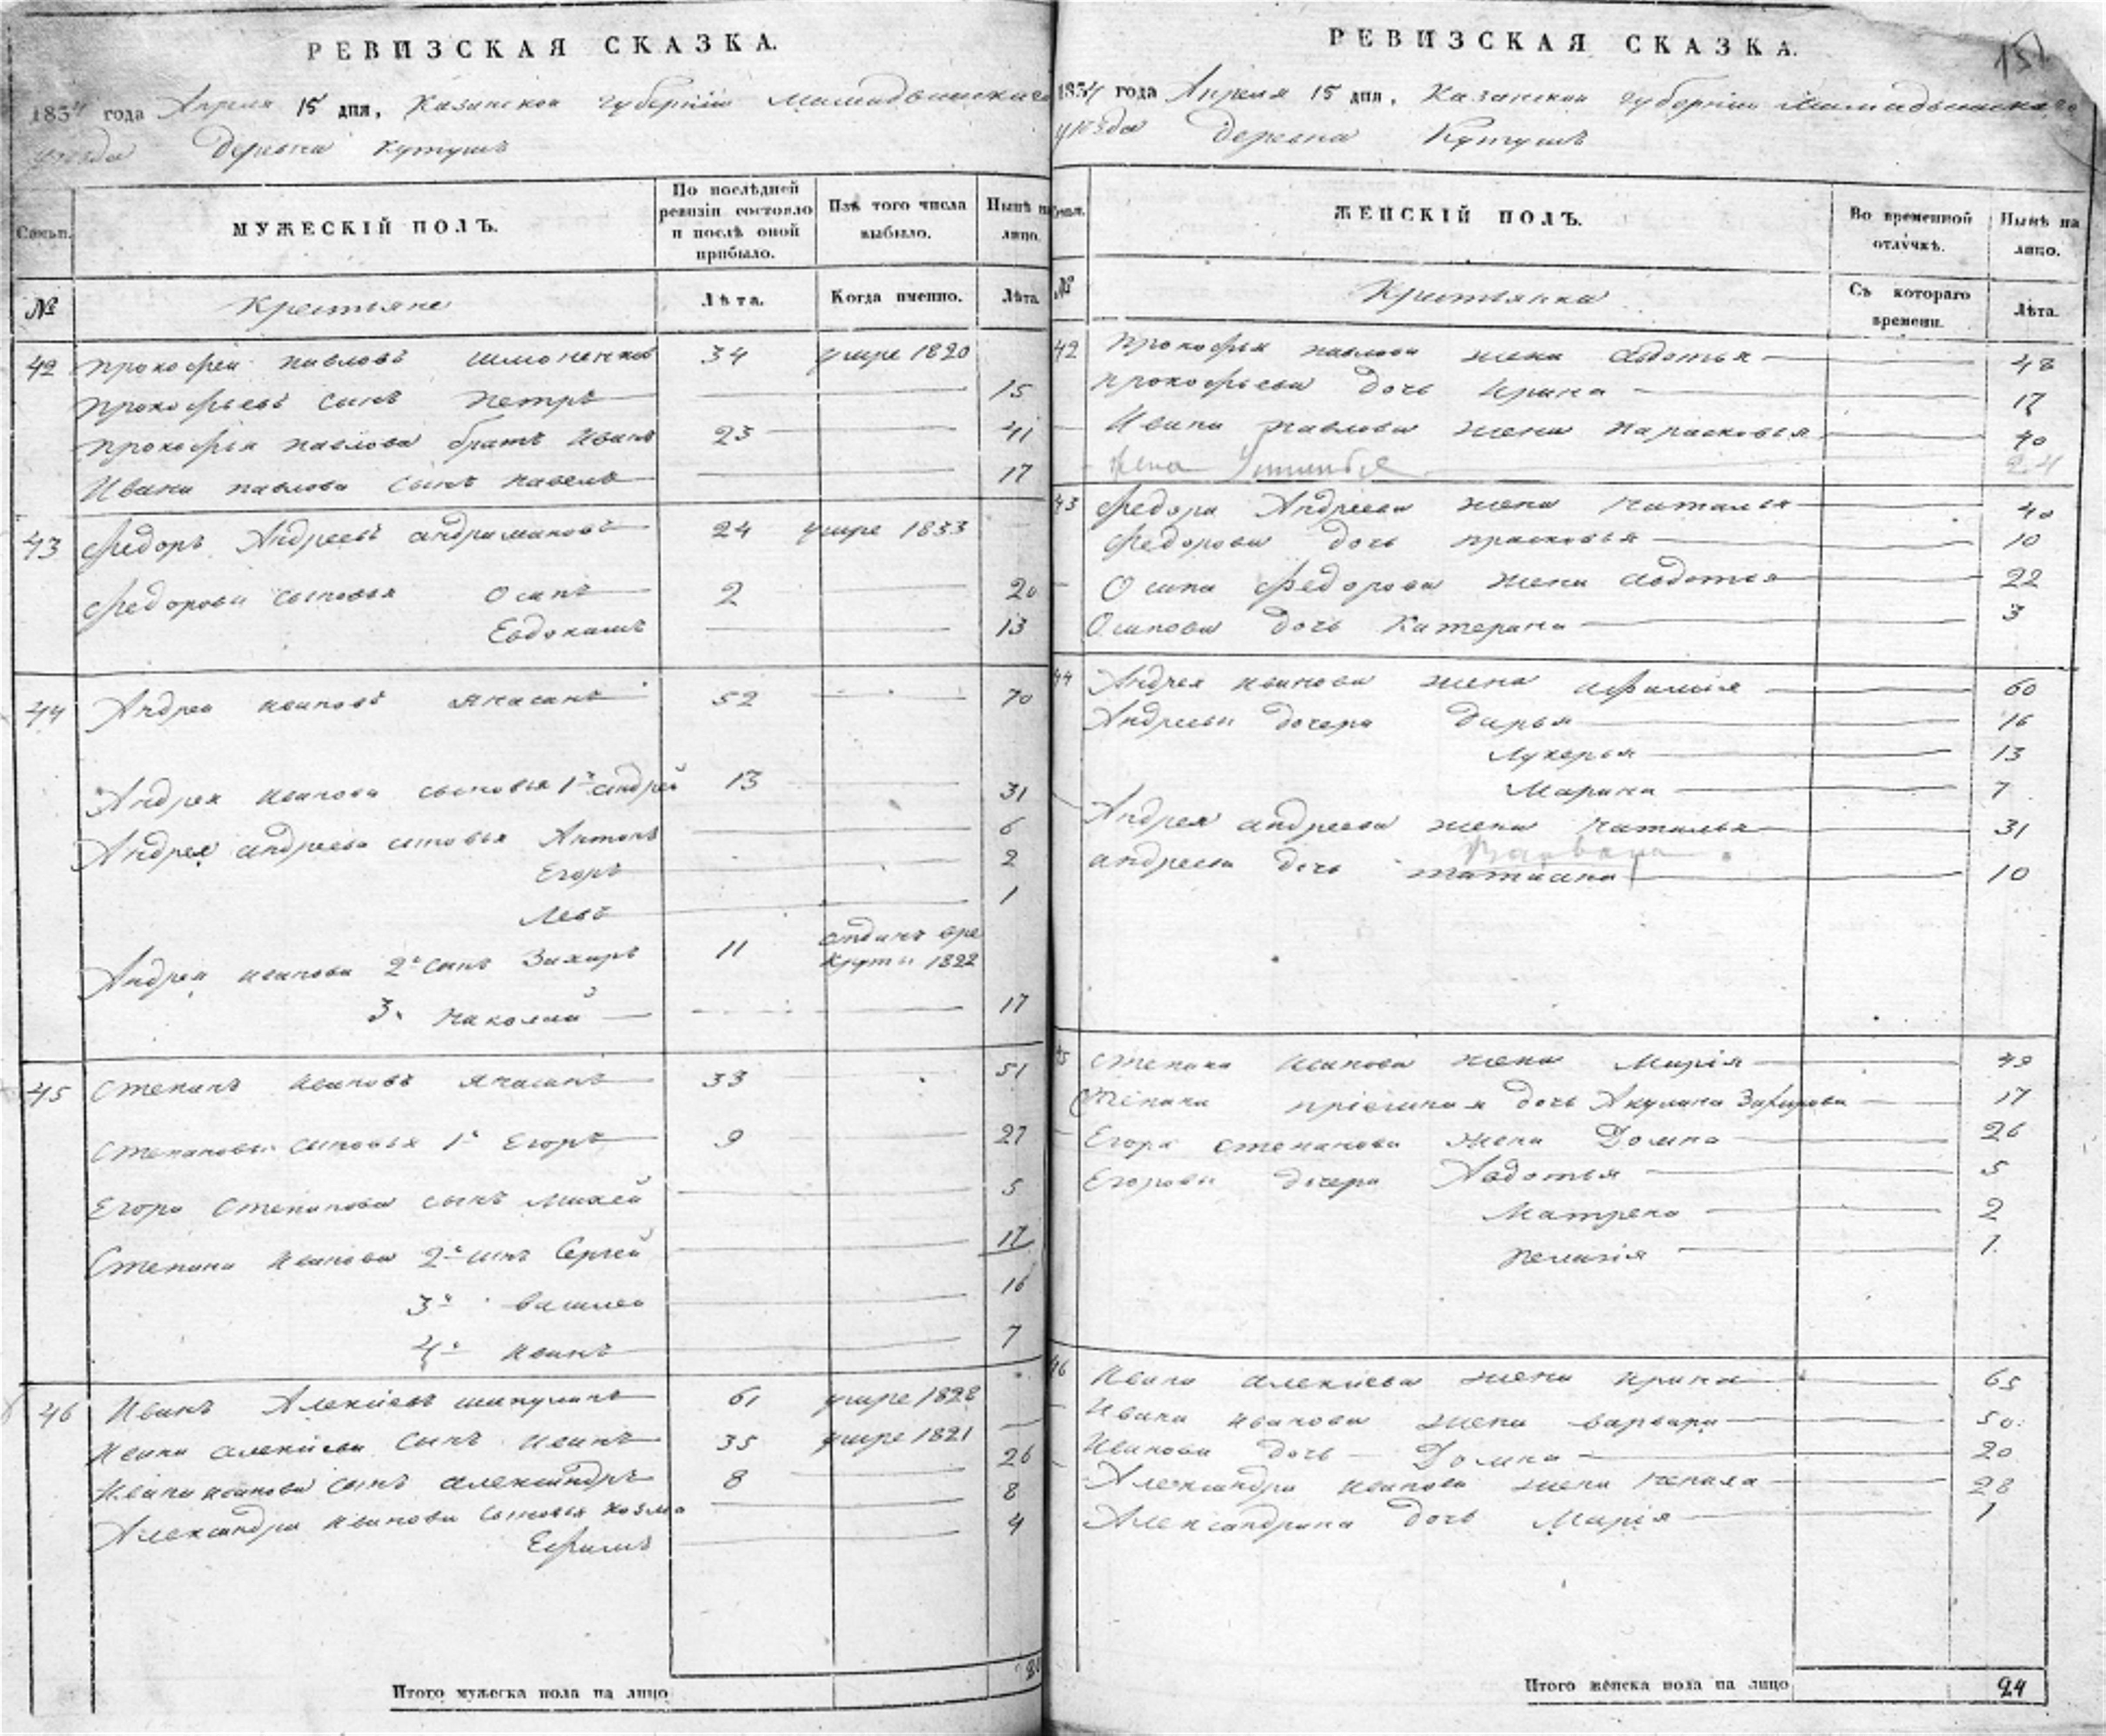 РЕВИЗСКАЯ СКАЗКА.
1834 года Апреля 15 дня, Казанской губернии Мамадышскаго
уезда деревни Кутушъ
Семьи.
МУЖЕСКІЙ ПОЛЪ.
По послѣдней ревизіи состояло и послѣ оной прибыло.
Изъ того числа выбыло.
Нынѣ на лицо.
№
Крестьяне
Лѣта.
Когда именно.
Лѣта.
42 Прокофей Павловъ 34 умре 1820
Прокофьевъ сынъ Петръ 15
Прокофья Павлова братъ Иванъ 23 41
Ивана Павлова сынъ Павелъ 17
43 Федоръ Андреевъ 24 умре 1833
Федоровы сыновья Осипъ 2 20
Евдокимъ 13
44 Андрей Ивановъ 52 70
Андрея Иванова сыновья 1й Андрей 13 31
Андрея Андреева сыновья Антонъ 6
Егоръ 2
Левъ 1
Андрея Иванова 2й сынъ Захаръ 11 отданъ в ре
круты 1822
3. Николай 17
45 Степанъ Ивановъ 33 51
Степановы сыновья 1й Егоръ 9 27
Егора Степанова сынъ Михей 5
Степана Иванова 2й сынъ Сергей 17
3й Василей 16
4й Иванъ 7
46 Иванъ Алексеевъ 61 умре 1828
Ивана Алексеева сынъ Иванъ 35 умре 1821
Ивана Иванова сынъ Александръ 8 26
Александра Иванова сыновья Козма 8
Ефимъ 4
Итого мужеска пола на лицо
РЕВИЗСКАЯ СКАЗКА.
151
1834 года Апреля 15 дня, Казанской губернии Мамадышскаго
уезда деревни Кутушъ
Семьи.
ЖЕНСКІЙ ПОЛЪ.
Во временной отлучкѣ.
Нынѣ на лицо.
№
Крестьянки
Съ котораго времени.
Лѣта.
42 Прокофья Павлова жена Авдотья 48
Прокофьева дочь Ирина 17
Ивана Павлова жена Парасковья 40
43 Федора Андреева жена Наталья 40
Федорова дочь Прасковья 10
Осипа Федорова жена Авдотья 22
Осипова дочь Катерина 3
44 Андрея Иванова жена 60
Андреевы дочери Дарья 16
Лукерья 13
Марина 7
Андрея Андреева жена Наталья 31
Варвара
Андреева дочь Татиана 10
45 Степана Иванова жена Марія 49
Степана дочь Акулина Захарова 17
Егора Степанова жена Домна 26
Егоровы дочери Авдотья 5
Матрена 2
Пелагія 1
46 Ивана Алексеева жена Ирина 65
Ивана Иванова жена Варвара 50
Иванова дочь Домна 20
Александра Иванова жена Ненила 28
Александрина дочь Марія 1
Итого женска пола на лицо 24